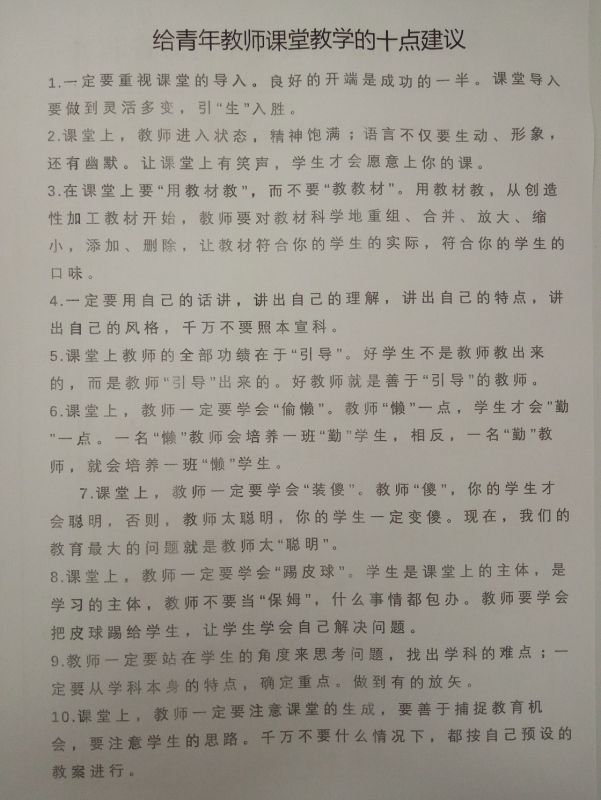 给青年教师课堂教学的十点建议
1.一定要重视课堂的导入。良好的开端是成功的一半。课堂导入
要做到灵活多变，引“生”入胜。
2.课堂上，教师进入状态，精神饱满；语言不仅要生动、形象，
还有幽默。让课堂上有笑声，学生才会愿意上你的课。
3.在课堂上要“用教材教”，而不要“教教材”。用教材教，从创造
性加工教材开始，教师要对教材科学地重组、合并、放大、缩
小，添加、删除，让教材符合你的学生的实际，符合你的学生的
口味。
4.一定要用自己的话讲，讲出自己的理解，讲出自己的特点，讲
出自己的风格，千万不要照本宣科。
5.课堂上教师的全部功绩在于“引导”。好学生不是教师教出来
的，而是教师“引导”出来的。好教师就是善于“引导”的教师。
6.课堂上，教师一定要学会“偷懒”。教师“懒”一点，学生才会“勤
”一点。一名“懒”教师会培养一班“勤”学生，相反，一名“勤”教
师，就会培养一班“懒”学生。
7.课堂上，教师一定要学会“装傻”。教师“傻”，你的学生才
会聪明，否则，教师太聪明，你的学生一定变傻。现在，我们的
教育最大的问题就是教师太“聪明”。
8.课堂上，教师一定要学会“踢皮球”。学生是课堂上的主体，是
学习的主体，教师不要当“保姆”，什么事情都包办。教师要学会
把皮球踢给学生，让学生学会自己解决问题。
9.教师一定要站在学生的角度来思考问题，找出学科的难点；一
定要从学科本身的特点，确定重点。做到有的放矢。
10.课堂上，教师一定要注意课堂的生成，要善于捕捉教育机
会，要注意学生的思路。千万不要什么情况下，都按自己预设的
教案进行。